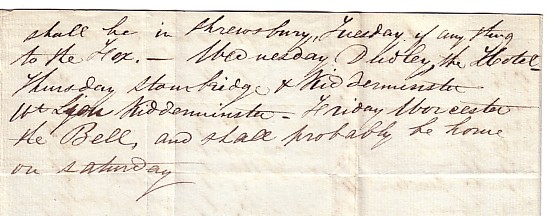 shall be in Shrewsbury, Tuesday if any thing
to the Fox. — Wednesday Dudley, the Hotel —
Thursday Stourbridge & Kidderminster
Lyon Kidderminster — Friday Worcester
the Bell, and shall probably be home
on Saturday